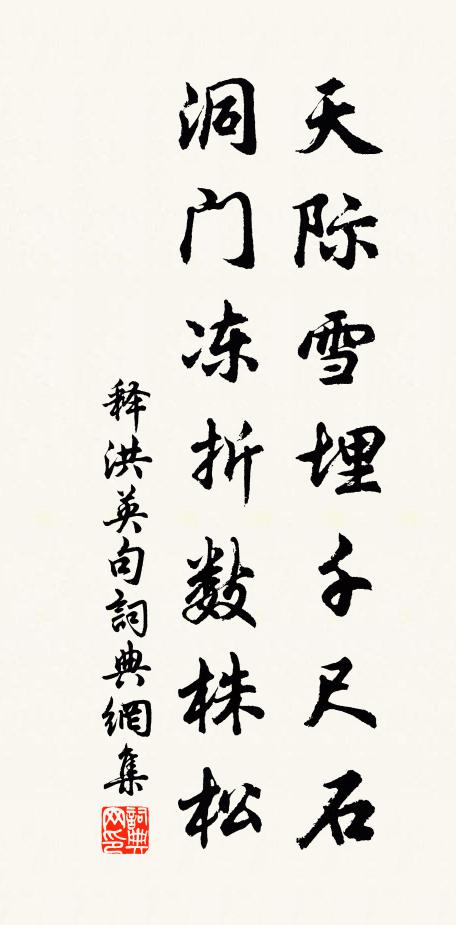 天际雪埋千尺石
洞门冻折数株松
释洪英句詞典網集
詞典网印